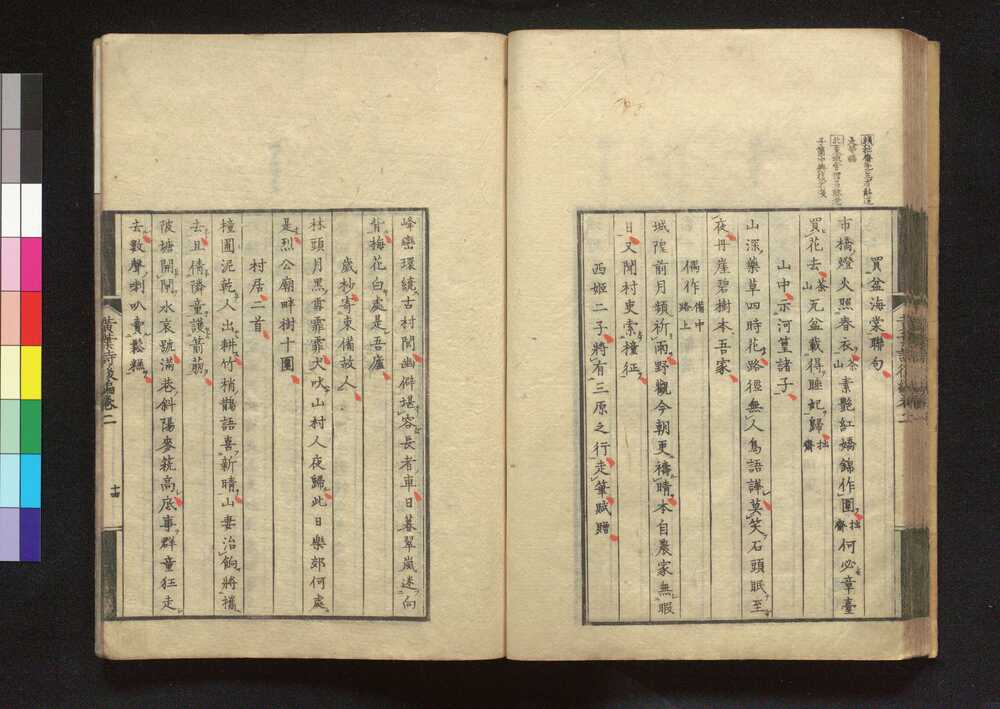 買盆海棠聯句
市橋燈火照春衣茶山素艶紅嬌錦作圍拙齋何必章臺
買花去茶山瓦盆載得睡妃歸拙齋
山中示河篁諸子
山深藥草四時花路徑無人鳥語譁莫笑石頭眠至
夜丹崖碧樹本吾家
偶作備中路上
城隍前月頻祈雨野觀今朝更禱晴本自農家無暇
日又聞村吏索種征
西姫二子將有三原之行走筆賦贈
峰巒環繞古村閭幽僻堪容長者車日暮翠嵐迷向
背梅花白處是吾廬
歲杪寄東備故人
林頭月黑雪霏霏犬吠山村人夜歸此日樂郊何處
是烈公廟畔樹十圍
村居二首
檣圃泥乾人出耕竹梢鵲語喜新晴山妻治餉將攜
去且倩隣童護箭萠
陂塘開閘水哀號滿巷斜陽麥秔高底事群童狂走
去數聲喇叭賣鬆糕
黄葉詩後編卷二
十四